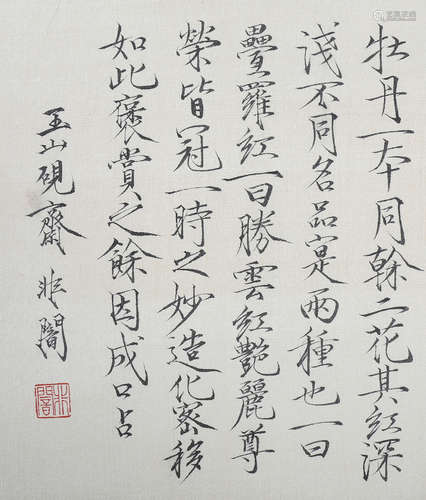 牡丹一本同榦二花其红深
浅不同名品寔两種也一曰
疊羅红一曰勝雲红艷麗尊
榮皆冠一時之妙造化密移
如此褒賞之餘因成口占
玉山硯齋 非闇